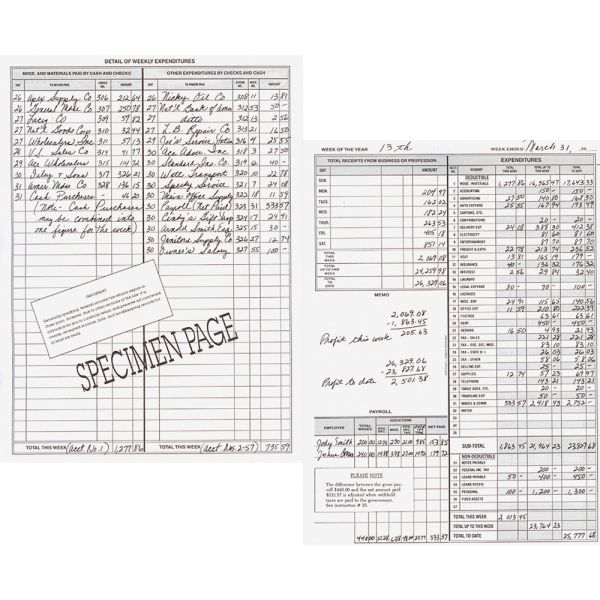 DETAIL OF WEEKLY EXPENDITURES
MDSE. AND MATERIALS PAID BY CASH AND CHECKS
OTHER EXPENDITURES BY CHECKS AND CASH
DAY TO WHOM PAID CHECK NO. AMOUNT DAY TO WHOM PAID CHECK NO. AMOUNT
26 Apex Supply Co 306 212 64
26 General Mdse Co. 307 250 78
27 Lacey Co 309 59 82
27 Nat'l Goods Corp 310 32 44
27 Wholesalers Inc 311 57 13
28 U.S. Sales Co 314 41 77
29 Ace Wholesalers 315 114 72
30 & Sons 317 326 21
31 Mdse Co 328 136 15
31 Cash Purchases 46 20
(Note - Cash Purchases
may be combined into
one figure for the week)
26 Nicky Oil Co 308 11 13 81
27 Nat'l Bank of 312 53 50 -
27 ditto 312 13 2 56
27 L.B. Repair Co 313 21 16 50
29 Joe's Service Station 316 4 25 55
30 Ace Adver. Inc. 318 3 27 50
30 Standard Ins. Co. 319 12 40 -
30 Watt Transport 320 10 22 78
30 Speedy Service 321 7 24 08
30 Main Office Supply 322 18 11 59
30 Payroll (Net Paid) 323 31 333 57
30 Cindy's Gift Shop 324 17 24 91
30 Smith Esq. 325 15 30 -
30 Janitors Supply Co 326 27 12 74
30 Owner's Salary 327 55 100 -
IMPORTANT
SPECIMEN PAGE
TOTAL THIS WEEK (acct No. 1) 1,277 86 TOTAL THIS WEEK (acct Nos 2-57) 735 59
WEEK OF THE YEAR 13th WEEK ENDED March 31, 20
TOTAL RECEIPTS FROM BUSINESS OR PROFESSION
DAY AMOUNT
SUN.
MON. 209 97
TUES. 162 02
WED. 182 24
THUR. 263 53
FRI. 405 18
SAT. 851 14
TOTAL THIS WEEK 2,069 08
TOTAL UP TO THIS WEEK 24,259 98
TOTAL TO DATE 26,329 06
MEMO
2,069.08
- 1,863.45
Profit this week 205.63
26,329.06
- 23,827.68
Profit to date 2,501.38
PAYROLL
EMPLOYEE TOTAL WAGES DEDUCTIONS NET PAID
Jody Smith 200 00 153 85
240 00 179 72
PLEASE NOTE
The difference between the gross payroll $440.00 and the net amount paid
$333.57 is adjusted when withheld
taxes are paid to the government.
See instruction # 23.
440 00 333 57
EXPENDITURES
ACCOUNT TOTAL THIS WEEK TOTAL UP TO THIS WEEK TOTAL TO DATE
DEDUCTIBLE
MDSE.-MATERIALS 1,277 86 16,365 47 17,643 33
ACCOUNTING 150 - 150 -
ADVERTISING 27 50 140 80 168 30
AUTO EXPENSE 25 55 167 94 193 49
CARTONS, ETC.
CONTRIBUTIONS 20 - 20 -
DELIVERY EXP 24 08 388 30 412 38
ELECTRICITY 81 60 81 60
ENTERTAINMENT 87 70 87 70
FREIGHT & EXPR. 22 78 213 74 236 52
HEAT 13 81 165 19 179 -
INSURANCE 40 - 136 32 176 32
INTEREST 2 56 29 84 32 40
LAUNDRY
LEGAL EXPENSE 30 - 70 - 100 -
LICENSES
MISC. EXP 24 91 115 65 140 56
OFFICE EXP 11 59 210 80 222 39
POSTAGE 63 61 63 61
RENT 450 - 450 -
REPAIRS 16 50 4 93 21 43
TAX - SALES 221 28 221 28
TAX - SOC. SEC. 83 10 83 10
TAX - STATE U. I. 26 03 26 03
TAX - OTHER 58 06 58 06
SELLING EXP. 25 - 25 -
SUPPLIES 12 74 57 23 69 97
TELEPHONE 143 21 143 21
TRADE DUES, ETC. 20 - 20 -
TRAVELING EXP. 50 - 50 -
WAGES & COMM. 333 57 2,418 43 2,752 -
WATER
SUB-TOTAL 1,863 45 21,964 23 23,827 68
NON-DEDUCTIBLE
NOTES PAYABLE
FEDERAL INC. TAX 200 - 200 -
LOANS PAYABLE 50 - 400 - 450 -
LOANS RECEIV.
PERSONAL 100 - 1,200 - 1,300 -
FIXED ASSETS
TOTAL THIS WEEK 2,013 45
TOTAL UP TO THIS WEEK 23,764 23
TOTAL TO DATE 25,777 68